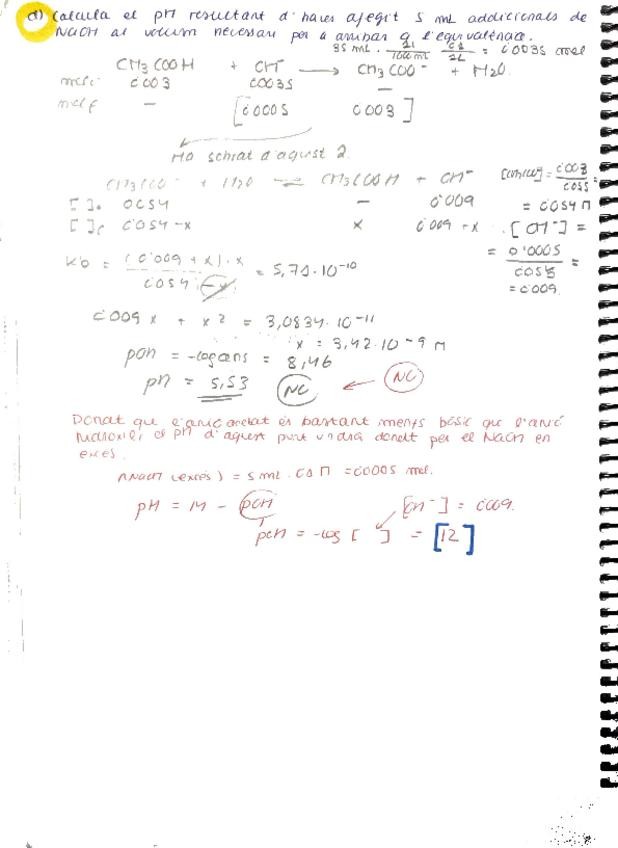 d) Calcula el pH resultant d'haver afegit 5 mL addicionals de
NaOH al volum necessari per a arribar a l'equivalència.
35 mL · 1L/1000mL · 0'1/1L = 0'0035 mol
CH3COOH + OH- → CH3COO- + H2O
mols i 0'003 0'0035 —
mols f — [0'0005 0'003]
Ho
d'aquest 2.
CH3COO- + H2O ⇌ CH3COOH + OH-
[CH3COO-] = 0'003/0'055 =
[ ]o 0'054 — 0'009
= 0'054 M
[ ]f 0'054-x x 0'009+x
[OH-] =
= 0'0005/0'055 =
= 0'009
Kb = (0'009+x)·x / 0'054-x = 5,71·10-10
0'009x + x2 = 3,0834·10-11
x = 3,42·10-9 M
pOH = -log = 8,46
pH = 5,53 NC ← NC
Donat que l'anió acetat és bastant menys bàsic que l'anió
hidroxil, el pH d'aquest punt vindrà donat per el NaOH en
excés.
nNaOH (excés) = 5 mL · 0'1 M = 0'0005 mol.
pH = 14 - pOH [OH-] = 0'009.
pOH = -log [ ] = [12]